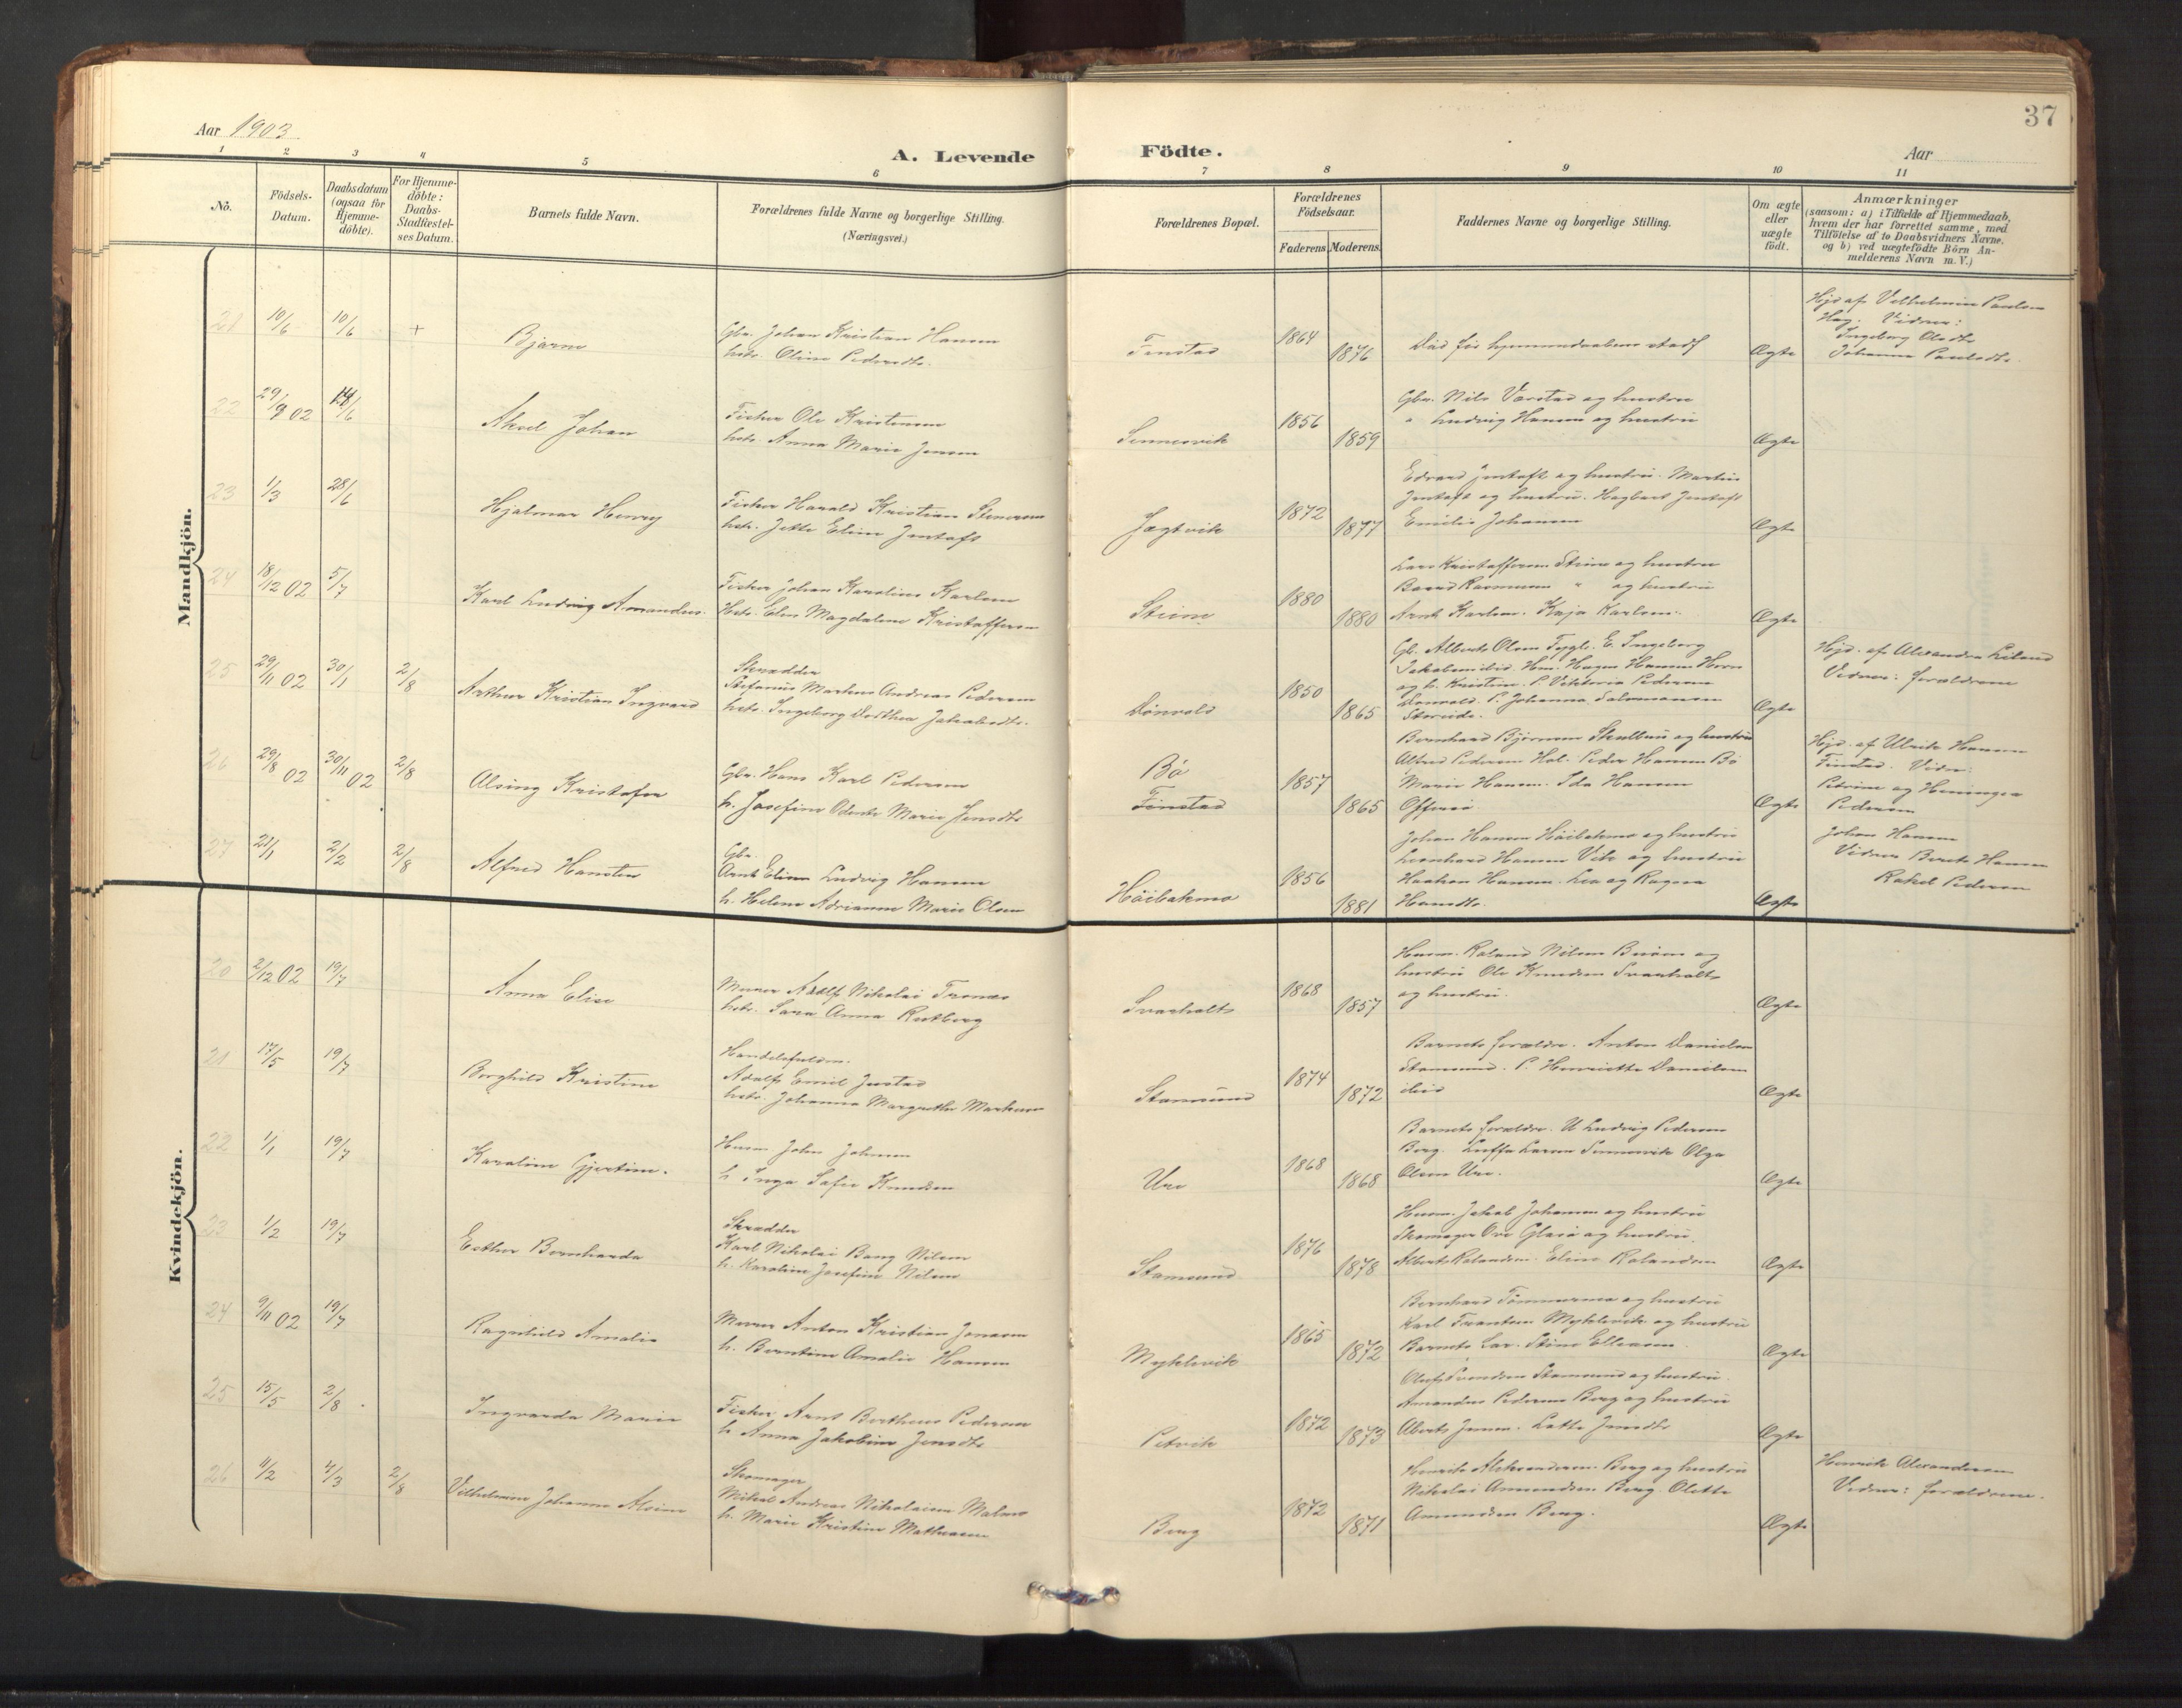 37
Aar 1903
A. Levende Födte.
Aar
1 2 3 4 5 6 7 8 9 10 11
No.
Födsels-
Datum.
Daabsdatum
(ogsaa for
Hjemme-
döbte).
For Hjemme-
döbte:
Daabs-
Stadfæstel-
ses Datum.
Barnets fulde Navn.
Forældrenes fulde Navne og borgerlige Stilling.
(Næringsvei.)
Forældrenes Bopæl.
Forældrenes
Födselsaar.
Faderens. Moderens.
Faddernes Navne og borgerlige Stilling.
Om ægte
eller
uægte
födt.
Anmærkninger
(saasom: a) i Tilfælde af Hjemmedaab,
hvem der har forrettet samme, med
Tilföielse af to Daabsvidners Navne,
og b) ved uægtefödte Börn An-
melderens Navn m. V.)
Mandkjön.
21 10/6 10/6 + Bjarne
Gbr. Johan Kristian Hansen
hstr. Oline Pedersdtr.
Finstad 1864 1876
Død før hjemmedaabens stadf
Ægte
Hjd af Vilhelmine Paulsen
Hag. Vidner:
Ingeborg Olsdtr
Johanna Paulsdtr.
22 29/9 02 14/6 Aksel Johan
Fisker Ole Kristensen
hstr. Anna Marie Jensen
Sennesvik 1856 1859
Gbr. Nils Varstad og hustru
" Ludvig Hansen og hustru
Ægte
23 1/3 28/6 Hjalmar Henry
Fisker Harald Kristian Stenersen
hstr. Jette Eline Jentoft
Jægtvik 1872 1877
Edvard Jentoft og hustru. Martin
Jentoft og hustru. Hagbart Jentoft
Emilie Johansen
Ægte
24 18/12 02 5/7 Karl Ludvig Amandus.
Fisker Johan Karolius Karlsen
Hstr. Elen Magdalene Kristoffersen
Steine 1880 1880
Lars Kristoffersen Steine og hustru
Baard Rasmussen " og hustru
Arnt Karlsen. Kaja Karlsen.
Ægte
25 29/11 02 30/1 2/8 Arthur Kristian Ingvard
Skrædder
Stefanus Markus Andreas Pedersen
hstr. Ingeborg Dorthea Jakobsdtr.
Dönvold 1850 1865
Gb. Albert Olsen Tygls. E. Ingeborg
og h. Kristine. P. Viktoria Pedersen
Dönvold. P. Johanna Salomonsen
Storeide.
Ægte
Hjd. af Alexandra Leland
Vidner: forældrene
26 29/8 02 30/11 02 2/8 Alsing Kristofer
Gbr. Hans Karl Pedersen
h. Josefine Odente Marie Jensdtr
Bö
Finstad 1857 1865
Bernhard Björnsen Skulbru og hustru
Alfred Pedersen Hol. Peder Hansen Bö
Marie Hansen. Ida Hansen
Offersö
Ægte
Hjd. af Ulrik Hansen
Finstad. Vidn:
Petrine og Henningea
Pedersen
27 21/1 2/2 2/8 Alfred Hansten
Gbr.
Arnt Elias Ludvig Hansen
h. Helene Adrianne Marie Olsen
Höibakmo 1856 1881
Johan Hansen Höibakmo og hustru
Leonhard Hansen Vik og hustru
Haakon Hansen. Lea og Ragna
Hansdtr.
Ægte
Johan Hansen
Vidner Berit Hansen
Rakel Pedersen
Kvindekjön.
20 2/12 02 19/7 Anna Elise
Murer Adolf Nikolai Tronæs
hstr. Sara Anna Rutberg
Svarholt 1868 1857
Husm. Roland Nilsen Buöen og
hustru Ole Knudsen Svarholt
og hustru.
Ægte
21 17/5 19/7 Borghild Kristine
Handelsfuldm.
Adolf Emil Justad
hstr. Johanna Margrethe Markussen
Stamsund 1874 1872
Barnets forældre. Anton Danielsen
Stamsund. P. Henriette Danielsen
ibid
Ægte
22 1/1 19/7 Karoline Gjertine.
Husm John Johnsen
h Inga Sofie Knudsen
Ure 1868 1868
Barnets forældre. U Ludvig Pedersen
Berg. Luffa Larsen Sennesvik Olga
Olsen Ure.
Ægte
23 1/2 19/7 Esther Bernharda
Skrædder
Karl Nikolai Bang Nilsen
h. Karoline Josefine Nilsen
Stamsund 1876 1878
Husm. Jakob Johansen og hustru
Skomager Ove Glasö og hustru.
Albert Rolandsen. Eline Rolandsen
Ægte
24 9/11 02 19/7 Ragnhild Amalie
Murer Anton Kristian Jonassen
h. Berntine Amalie Hansen
Myklevik 1865 1872
Bernhard Tömmermo og hustru
Karl Frantsen Myklevik og hustru
Barnets Far. Stine Ellevsen
Ægte
25 15/5 2/8 Ingvarda Marie
Fisker Arnt Bertheus Pedersen
h Anna Jakobine Jensdtr
Petvik 1872 1873
Oluf Svendsen Stamsund og hustru.
Amandus Pedersen Berg og hustru
Albert Jensen. Lotte Jensdtr
Ægte
26 11/2 4/3 2/8 Vilhelmine Johanne Alvine
Skomager
Mikal Andreas Nikolaisen Malnes
h. Marie Kristine Mathisen
Berg 1872 1871
Henrik Aleksandersen Berg og hustru
Nikolai Amundsen Berg. Olette
Amundsen Berg.
Ægte
Henrik Alexandersen
Vidner: forældrene.